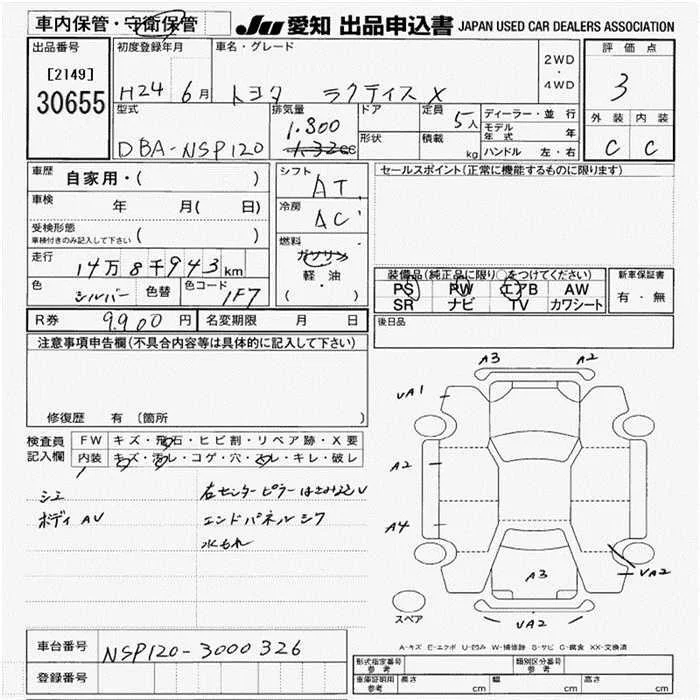 車内保管・守衛保管
JU 愛知 出品申込書 JAPAN USED CAR DEALERS ASSOCIATION
出品番号 初度登録年月 車名・グレード 2WD・4WD 評価点
[2149]
30655 H24 6月 トヨタ ラクティス X 3
型式 排気量 ドア 定員 5人 ディーラー・並行 外装 内装
DBA-NSP120 1.300 形状 積載 kg モデル年式 年 C C
1.32cc ハンドル 左・右
車歴 自家用・( ) シフト AT セールスポイント(正常に機能するものに限ります)
車検 年 月( 日) 冷房 AC
受検形態
車検付きのみ記入して下さい ( )
走行 14万8千943km 燃料 ガソリン 軽・油 ( )
色 シルバー 色替 色コード 1F7
装備品(純正品に限り○をつけてください) 新車保証書
PS PW エアB AW 有・無
SR ナビ TV カワシート
R券 9.900円 名変期限 月 日 後日品
注意事項申告欄(不具合内容等は具体的に記入して下さい)
修復歴 有 (箇所 )
検査員記入欄 FW キズ・飛石・ヒビ割・リペア跡・X要
内装 キズ・汚レ・コゲ・穴・スレ・キレ・破レ
右センターピラーはさみ込V
ボディ AV エンドパネルシワ
水もれ
A3 A2
UA1
A2
A4
A3
UA2
UA2
スペア
A-キズ E-エクボ U-凹み W-補修跡 S-サビ C-腐食 XX-交換済
車台番号 NSP120-3000326
登録番号
形式指定番号 参考 類別区分番号 参考
車庫証明用 参考 長さ cm 幅 cm 高さ cm